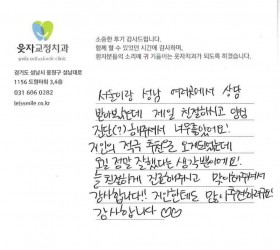 웃자교정치과
smile orthodontic clinic
소중한 후기 감사드립니다.
함께 할 수 있었던 시간에 감사하며,
환자분들의 소리에 귀 기울이는 웃자치과가 되도록 하겠습니다.
경기도 성남시 중원구 성남대로
1156 드림타워 3,4층
031 606 0282
letssmile.co.kr
서울이랑 성남 여러곳에서 상담
받아봤는데 제일 친절하시고
진단(?) 해주셔서 너무좋았어요!
지인의 적극 추천을 오게되었는데
오길 정말 잘했다는 생각뿐이에요!
늘 친절하게 진료해주시고 맞이해주셔서
감사합니다!! 지인한테도 많이추천하려구요!
감사합니다 ♡♡